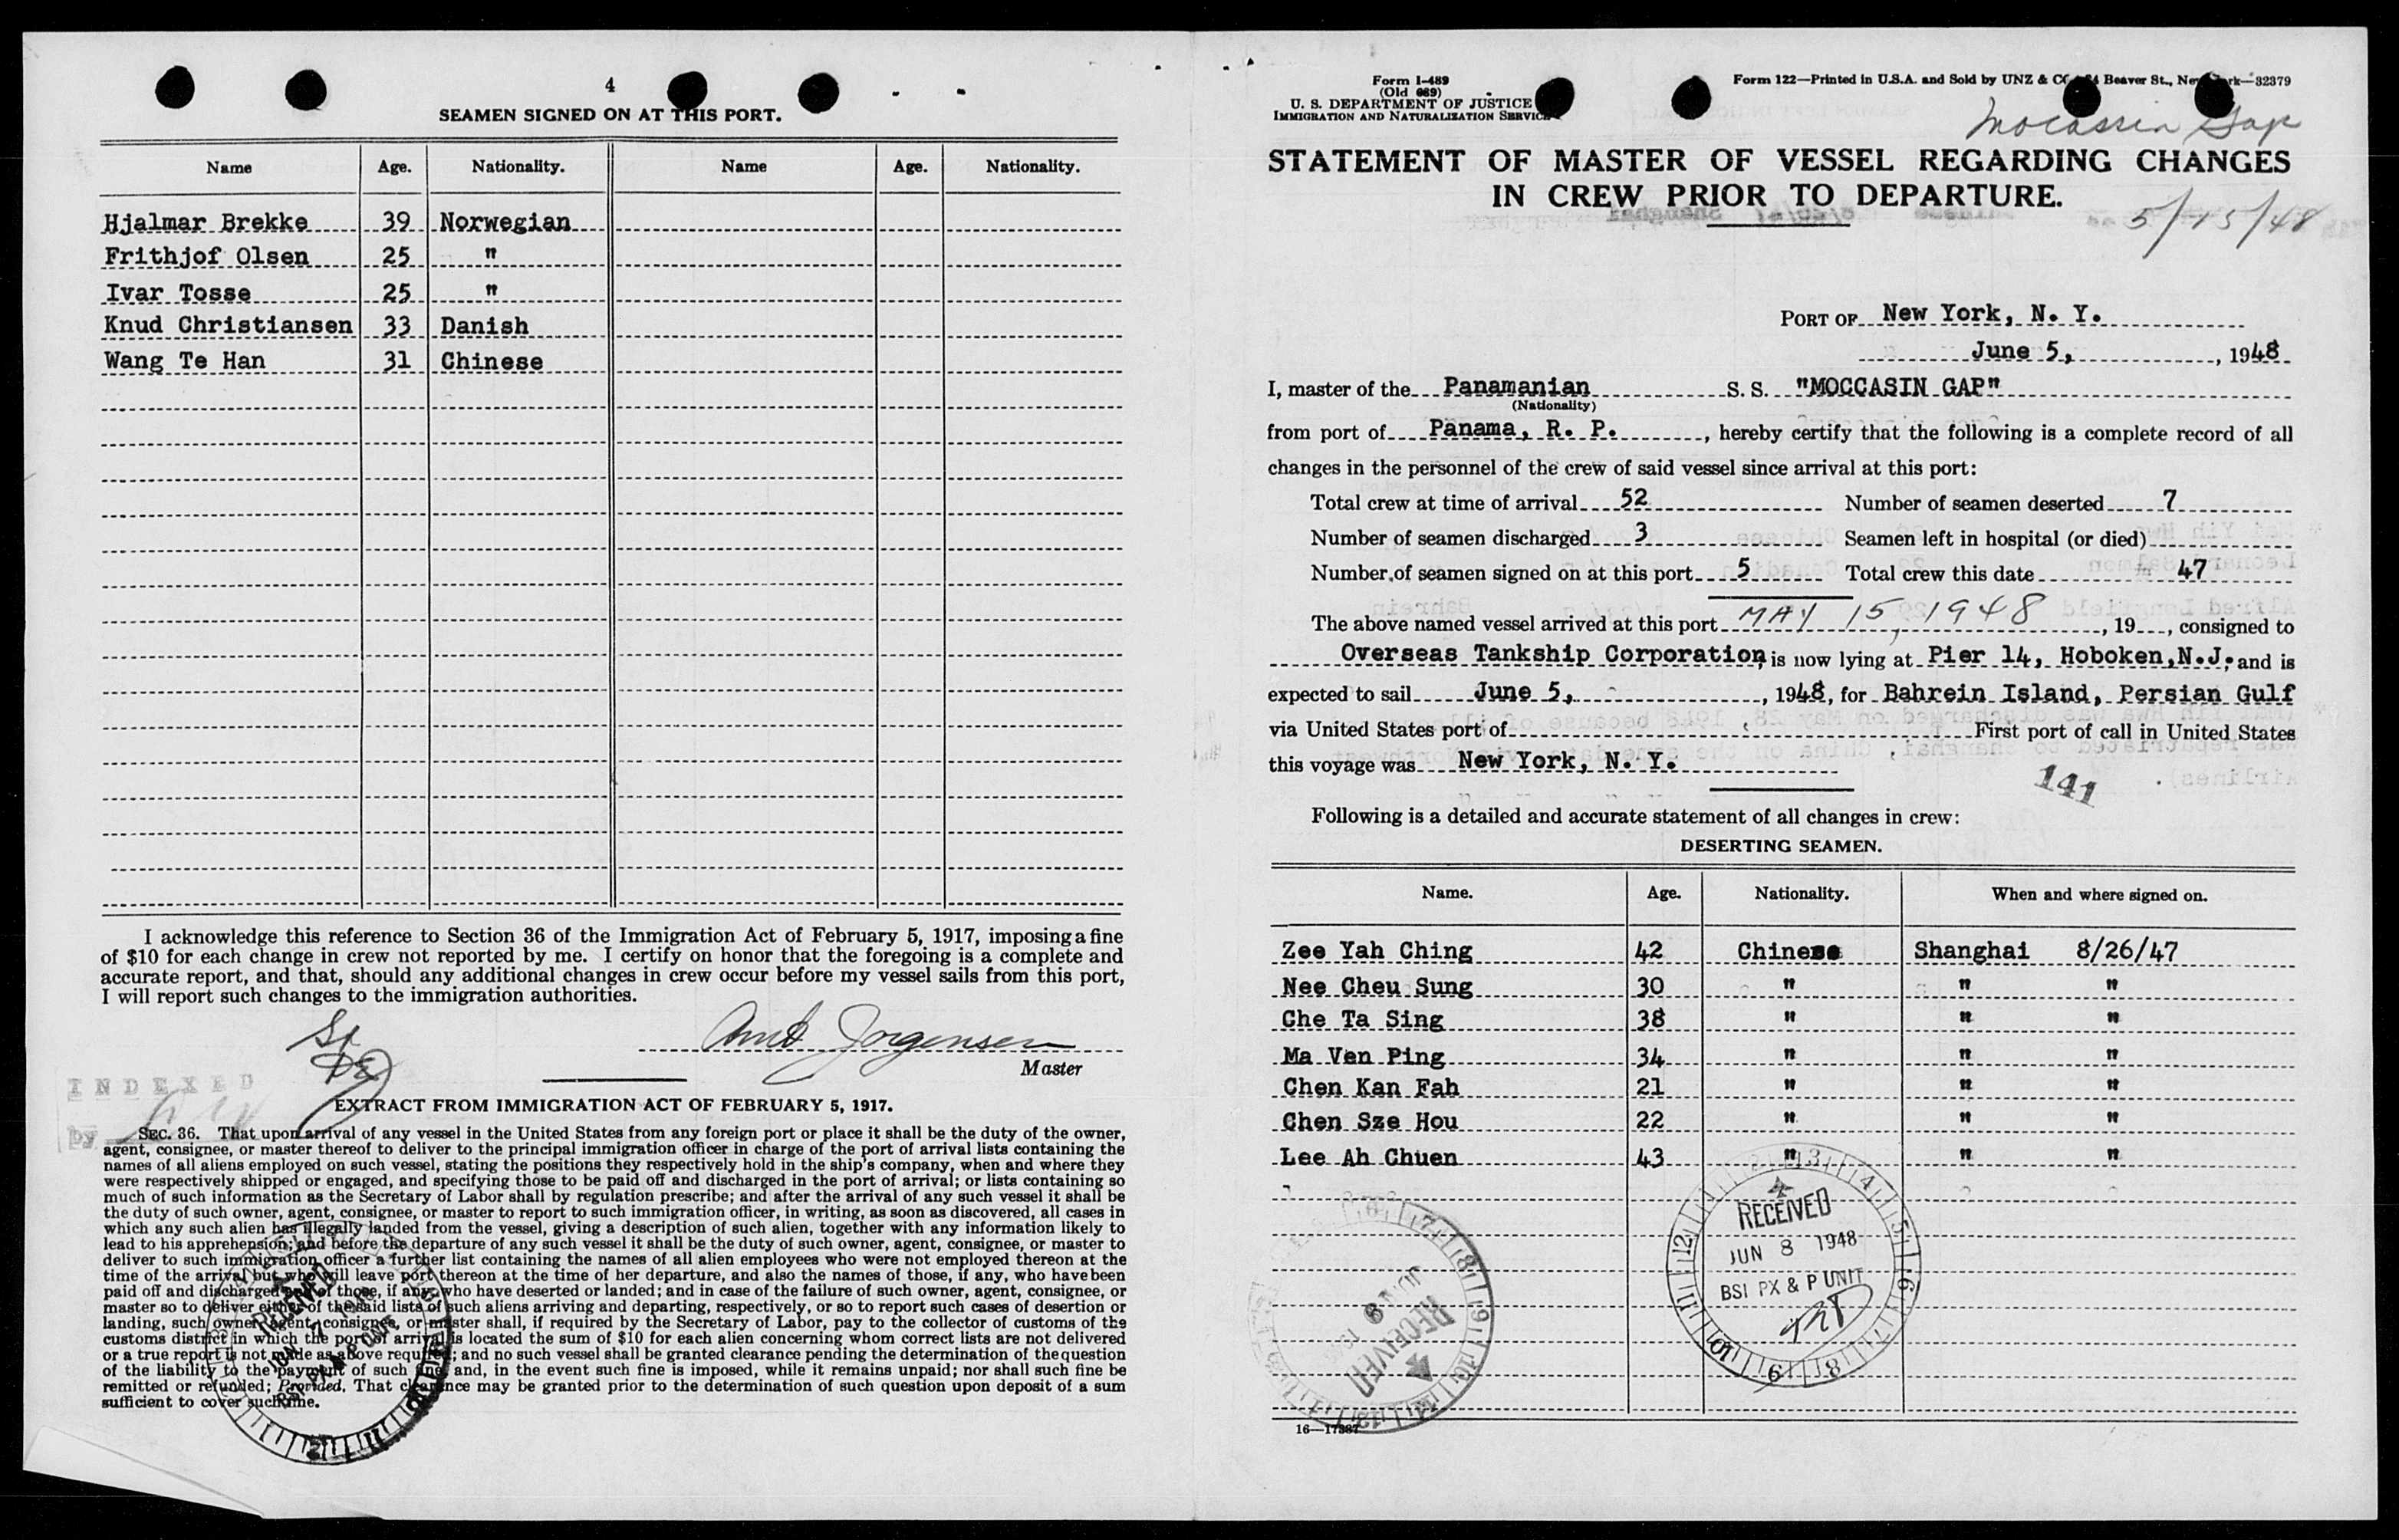 4
SEAMEN SIGNED ON AT THIS PORT.
Name Age. Nationality. Name Age. Nationality.
Hjalmar Brekke 39 Norwegian
Frithjof Olsen 25 "
Ivar Tosse 25 "
Knud Christiansen 33 Danish
Wang Te Han 31 Chinese
I acknowledge this reference to Section 36 of the Immigration Act of February 5, 1917, imposing a fine
of $10 for each change in crew not reported by me. I certify on honor that the foregoing is a complete and
accurate report, and that, should any additional changes in crew occur before my vessel sails from this port,
I will report such changes to the immigration authorities.
Jorgensen
Master
INDEXED
by
EXTRACT FROM IMMIGRATION ACT OF FEBRUARY 5, 1917.
SEC. 36. That upon arrival of any vessel in the United States from any foreign port or place it shall be the duty of the owner,
agent, consignee, or master thereof to deliver to the principal immigration officer in charge of the port of arrival lists containing the
names of all aliens employed on such vessel, stating the positions they respectively hold in the ship's company, when and where they
were respectively shipped or engaged, and specifying those to be paid off and discharged in the port of arrival; or lists containing so
much of such information as the Secretary of Labor shall by regulation prescribe; and after the arrival of any such vessel it shall be
the duty of such owner, agent, consignee, or master to report to such immigration officer, in writing, as soon as discovered, all cases in
which any such alien has illegally landed from the vessel, giving a description of such alien, together with any information likely to
lead to his apprehension; and before the departure of any such vessel it shall be the duty of such owner, agent, consignee, or master to
deliver to such immigration officer a further list containing the names of all alien employees who were not employed thereon at the
time of the arrival but who will leave port thereon at the time of her departure, and also the names of those, if any, who have been
paid off and discharged and of those, if any, who have deserted or landed; and in case of the failure of such owner, agent, consignee, or
master so to deliver either of the said lists of such aliens arriving and departing, respectively, or so to report such cases of desertion or
landing, such owner, agent, consignee, or master shall, if required by the Secretary of Labor, pay to the collector of customs of the
customs district in which the port of arrival is located the sum of $10 for each alien concerning whom correct lists are not delivered
or a true report is not made as above required; and no such vessel shall be granted clearance pending the determination of the question
of the liability to the payment of such fine, and, in the event such fine is imposed, while it remains unpaid; nor shall such fine be
remitted or refunded; Provided, That clearance may be granted prior to the determination of such question upon deposit of a sum
sufficient to cover such fine.
RECEIVED
Form I-489
(Old 689)
U. S. DEPARTMENT OF JUSTICE
IMMIGRATION AND NATURALIZATION SERVICE
Form 122—Printed in U.S.A. and Sold by UNZ & Beaver St., 32379
Mocassin Gap
STATEMENT OF MASTER OF VESSEL REGARDING CHANGES
IN CREW PRIOR TO DEPARTURE.
5/15/48
PORT OF New York, N. Y.
June 5, , 1948
I, master of the Panamanian S. S. "MOCCASIN GAP"
(Nationality)
from port of Panama, R. P. , hereby certify that the following is a complete record of all
changes in the personnel of the crew of said vessel since arrival at this port:
Total crew at time of arrival 52 Number of seamen deserted 7
Number of seamen discharged 3 Seamen left in hospital (or died)
Number of seamen signed on at this port 5 Total crew this date 47
The above named vessel arrived at this port MAY 15, 1948 , 19 , consigned to
Overseas Tankship Corporation, is now lying at Pier 14, Hoboken, N.J. and is
expected to sail June 5, , 1948, for Bahrein Island, Persian Gulf
via United States port of First port of call in United States
this voyage was New York, N. Y.
141
Following is a detailed and accurate statement of all changes in crew:
DESERTING SEAMEN.
Name. Age. Nationality. When and where signed on.
Zee Yah Ching 42 Chinese Shanghai 8/26/47
Nee Cheu Sung 30 " " "
Che Ta Sing 38 " " "
Ma Ven Ping 34 " " "
Chen Kan Fah 21 " " "
Chen Sze Hou 22 " " "
Lee Ah Chuen 43 " " "
RECEIVED
JUN 8 1948
BSI PX & P UNIT
RECEIVED
JUN 8
16—17387